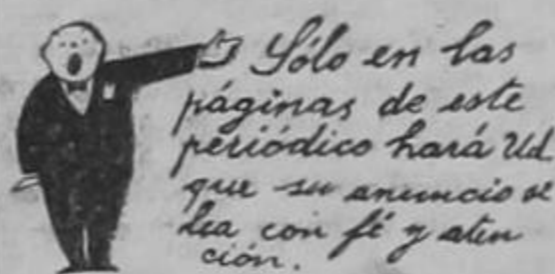 Sólo en las
páginas de este
periódico hará Ud.
que su anuncio se
lea con fé y aten
ción.